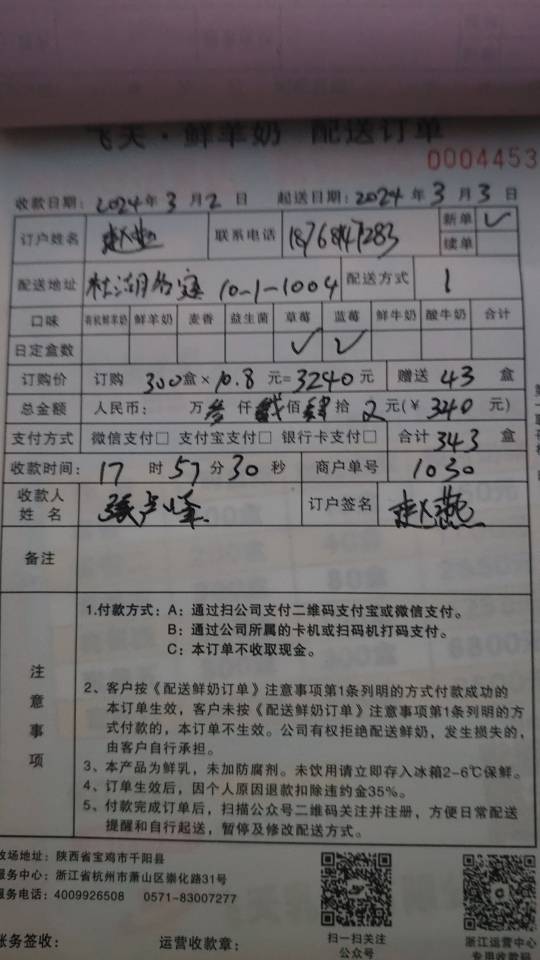 飞天·鲜羊奶 配送订单
0004453
收款日期：2024年3月2日 起送日期：2024年3月3日
订户姓名 赵燕 联系电话 新单 ✓
续单
配送地址 10-1-1004 配送方式 1
口味 有机鲜羊奶 鲜羊奶 麦香 益生菌 草莓 蓝莓 鲜牛奶 酸牛奶 合计
日定盒数 ✓ ✓
订购价 订购 300盒×10.8元=3240元 赠送 43 盒
总金额 人民币： 万叁仟贰佰肆拾 元(￥340元)
支付方式 微信支付□ 支付宝支付□ 银行卡支付□ 合计 343 盒
收款时间： 17时57分30秒 商户单号 1030
收款人姓名 张 峰 订户签名 赵燕
备注
注意事项
1.付款方式：A：通过扫公司支付二维码支付宝或微信支付。
B：通过公司所属的卡机或扫码机打码支付。
C：本订单不收取现金。
2、客户按《配送鲜奶订单》注意事项第1条列明的方式付款成功的
本订单生效，客户未按《配送鲜奶订单》注意事项第1条列明的方
式付款的，本订单不生效。公司有权拒绝配送鲜奶，发生损失的，
由客户自行承担。
3、本产品为鲜乳，未加防腐剂。未饮用请立即存入冰箱2-6℃保鲜。
4、订单生效后，因个人原因退款扣除违约金35%。
5、付款完成订单后，扫描公众号二维码关注并注册，方便日常配送
提醒和自行起送，暂停及修改配送方式。
牧场地址：陕西省宝鸡市千阳县
服务中心：浙江省杭州市萧山区崇化路31号
服务电话：4009926508 0571-83007277
账务签收： 运营收款章： 扫一扫关注 浙江运营中心
公众号 专用收款码